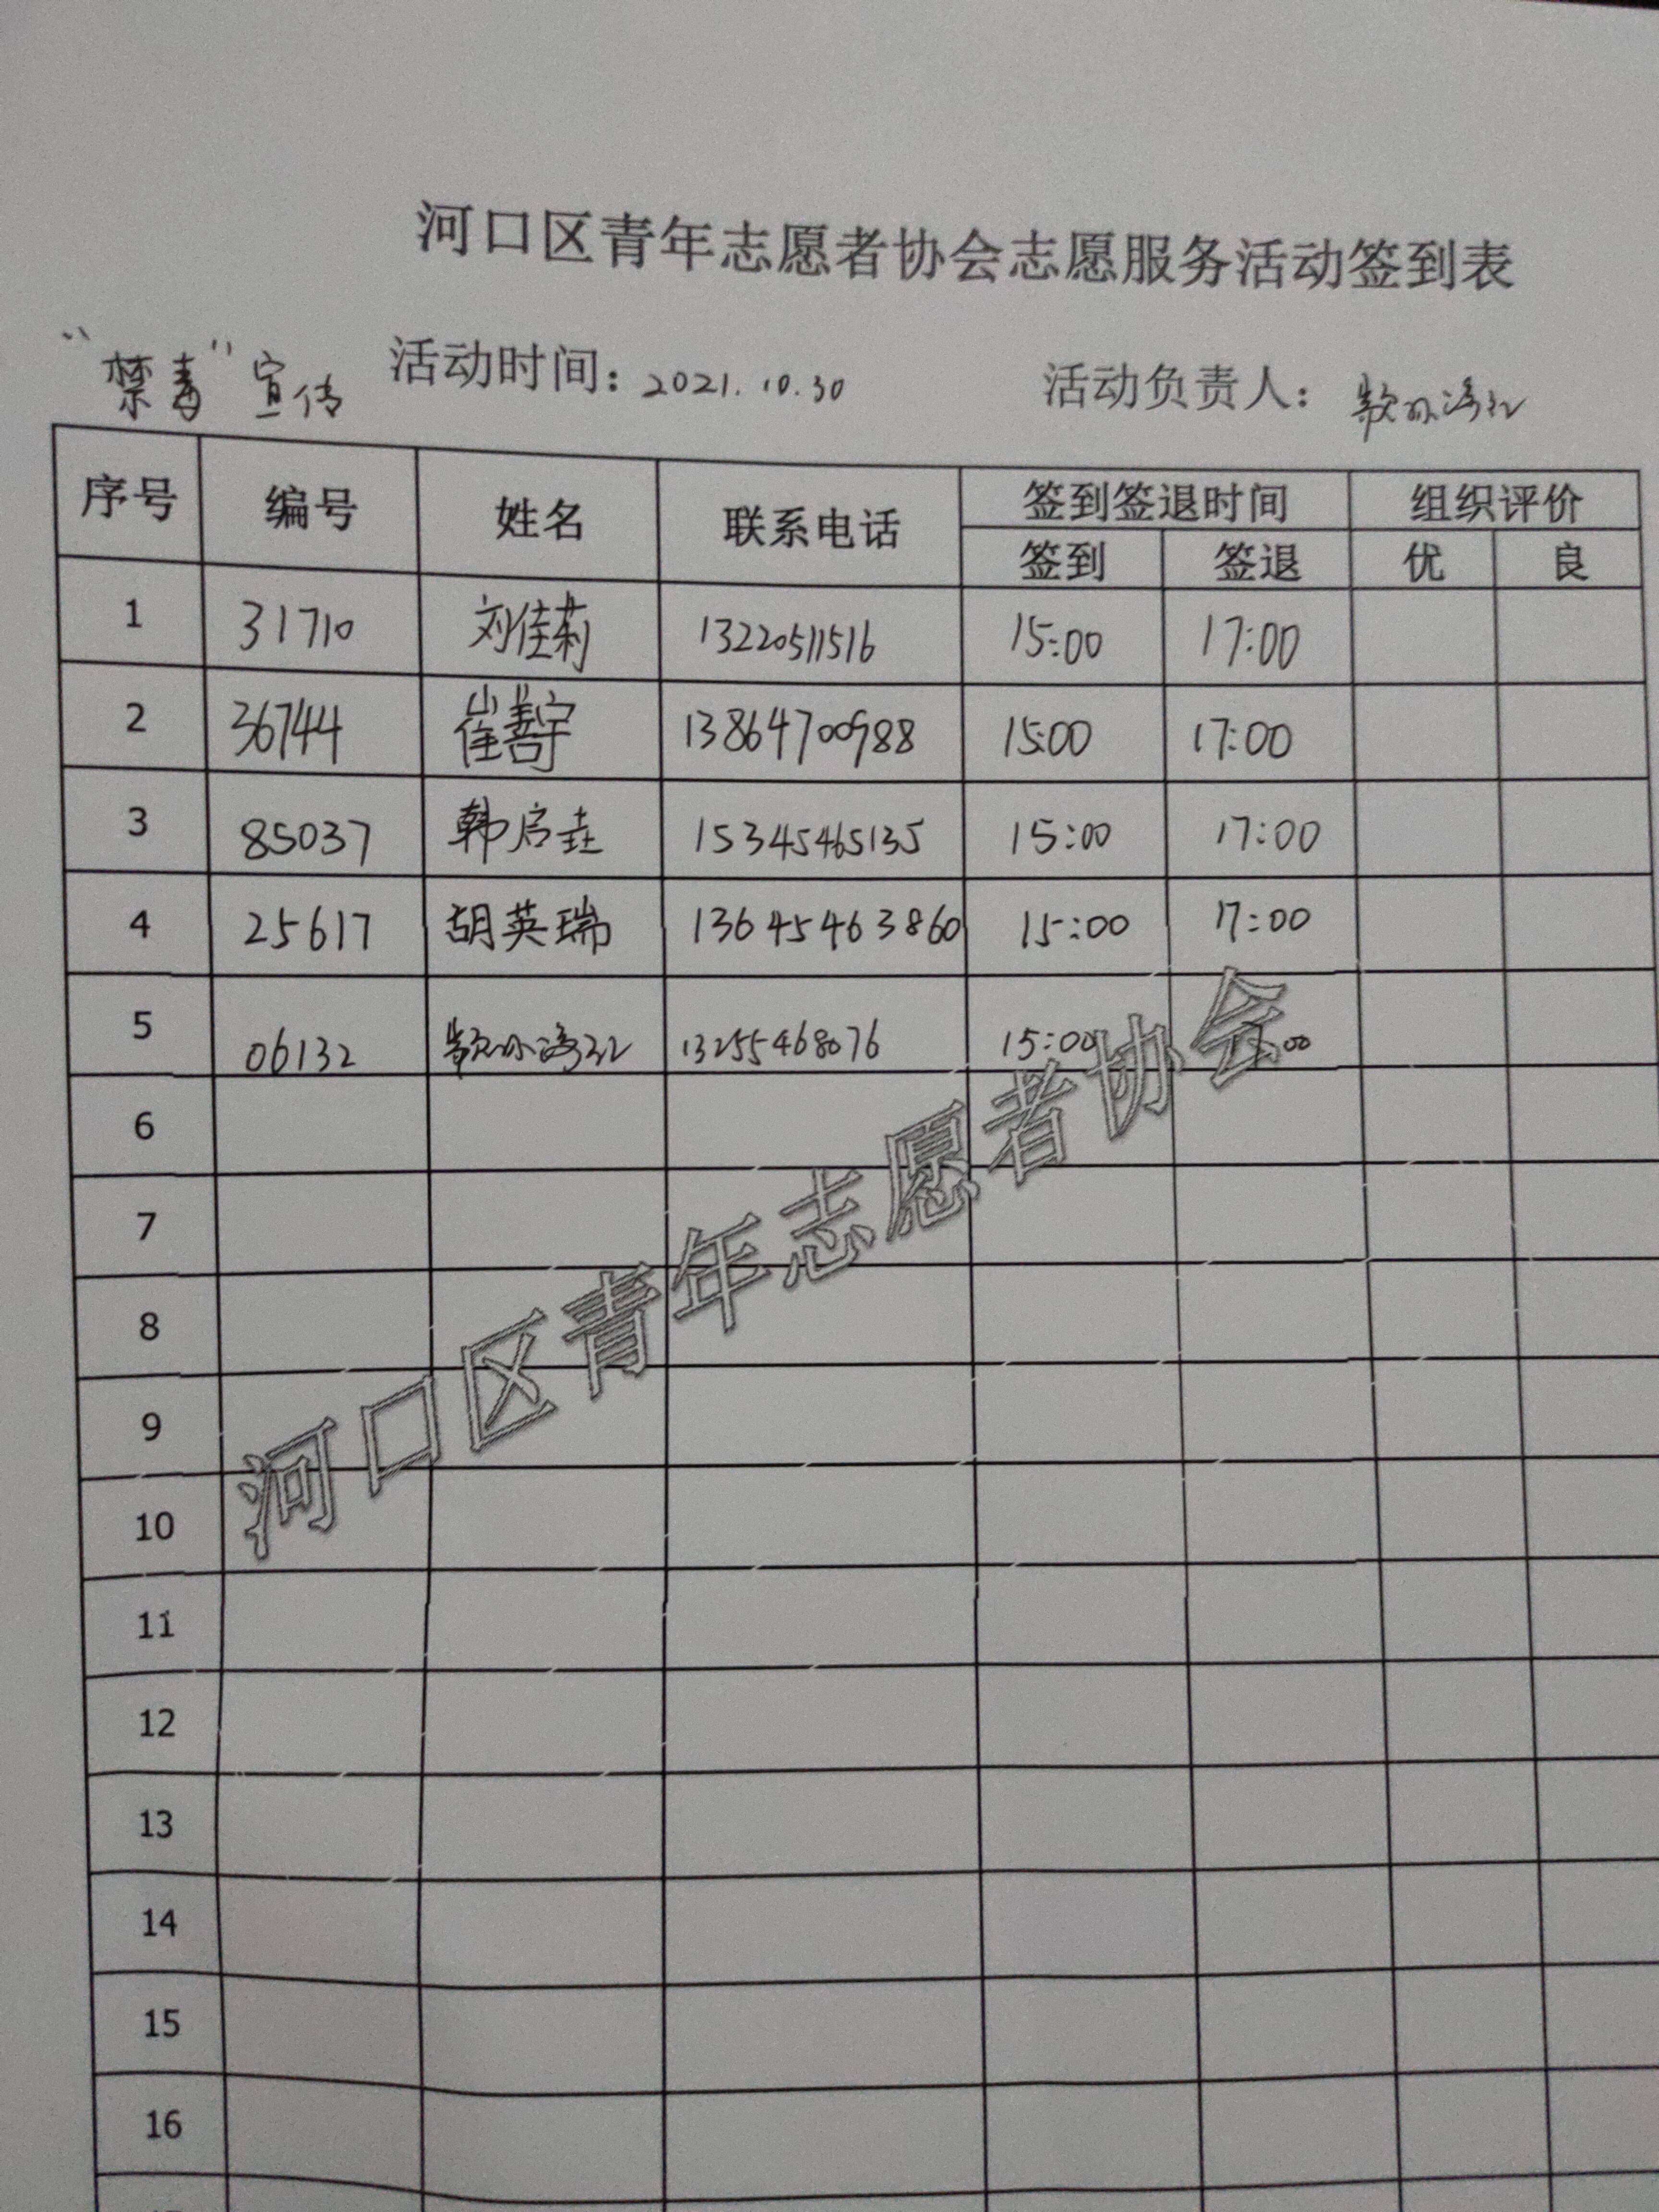 河口区青年志愿者协会志愿服务活动签到表
“禁毒”宣传 活动时间：2021.10.30 活动负责人：
序号 编号 姓名 联系电话 签到签退时间 组织评价
签到 签退 优 良
1 31710 刘佳莉 13220511516 15:00 17:00
2 36744 崔善宇 13864700988 15:00 17:00
3 85037 韩启 15345465135 15:00 17:00
4 25617 胡英瑞 13645463860 15:00 17:00
5 06132 13255468076 15:00 :00
6
7
8
9
10
11
12
13
14
15
16
河口区青年志愿者协会